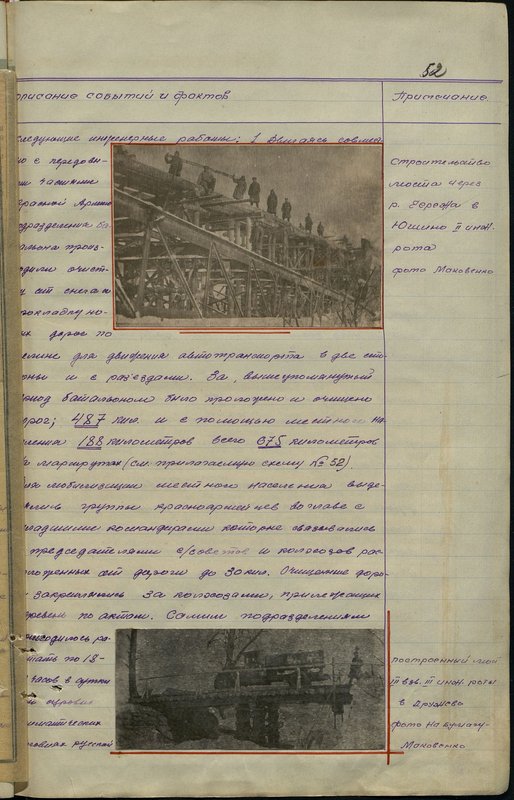 52
описание событий и фактов
Примечание
следующие инженерные работы: 1. Двигаясь совмест
но с передовы-
ми частями
Красной Армии
подразделения ба-
тальона произ-
водили очист-
ку от снега и
прокладку но-
вых дорог по
целине для движения автотранспорта в две сто-
роны и с разъездами. За вышеупомянутый
период батальоном было проложено и очищено
дорог; 487 клм. и с помощью местного на-
селения 188 километров всего 675 километров
маршрутах (см. прилагаемую схему № 52)
Для мобилизации местного населения выде-
лялись группы красноармейцев во главе с
младшими командирами которые связывались
с председателями с/советов и колхозов рас-
положенных от дороги до 30 клм. Очищенные доро-
ги закреплялись за колхозами, прилежащих
деревень по актам. Самим подразделениям
приходилось ра-
ботать по 18-
часов в сутки
в суровых
климатических
условиях русской
Строительство
моста через
р. Береза в
Юшино II инж.
рота
фото Маковенко
построенный мост
III взв. III инж. роты
в Дружево
фото на бумагу-
Маковенко